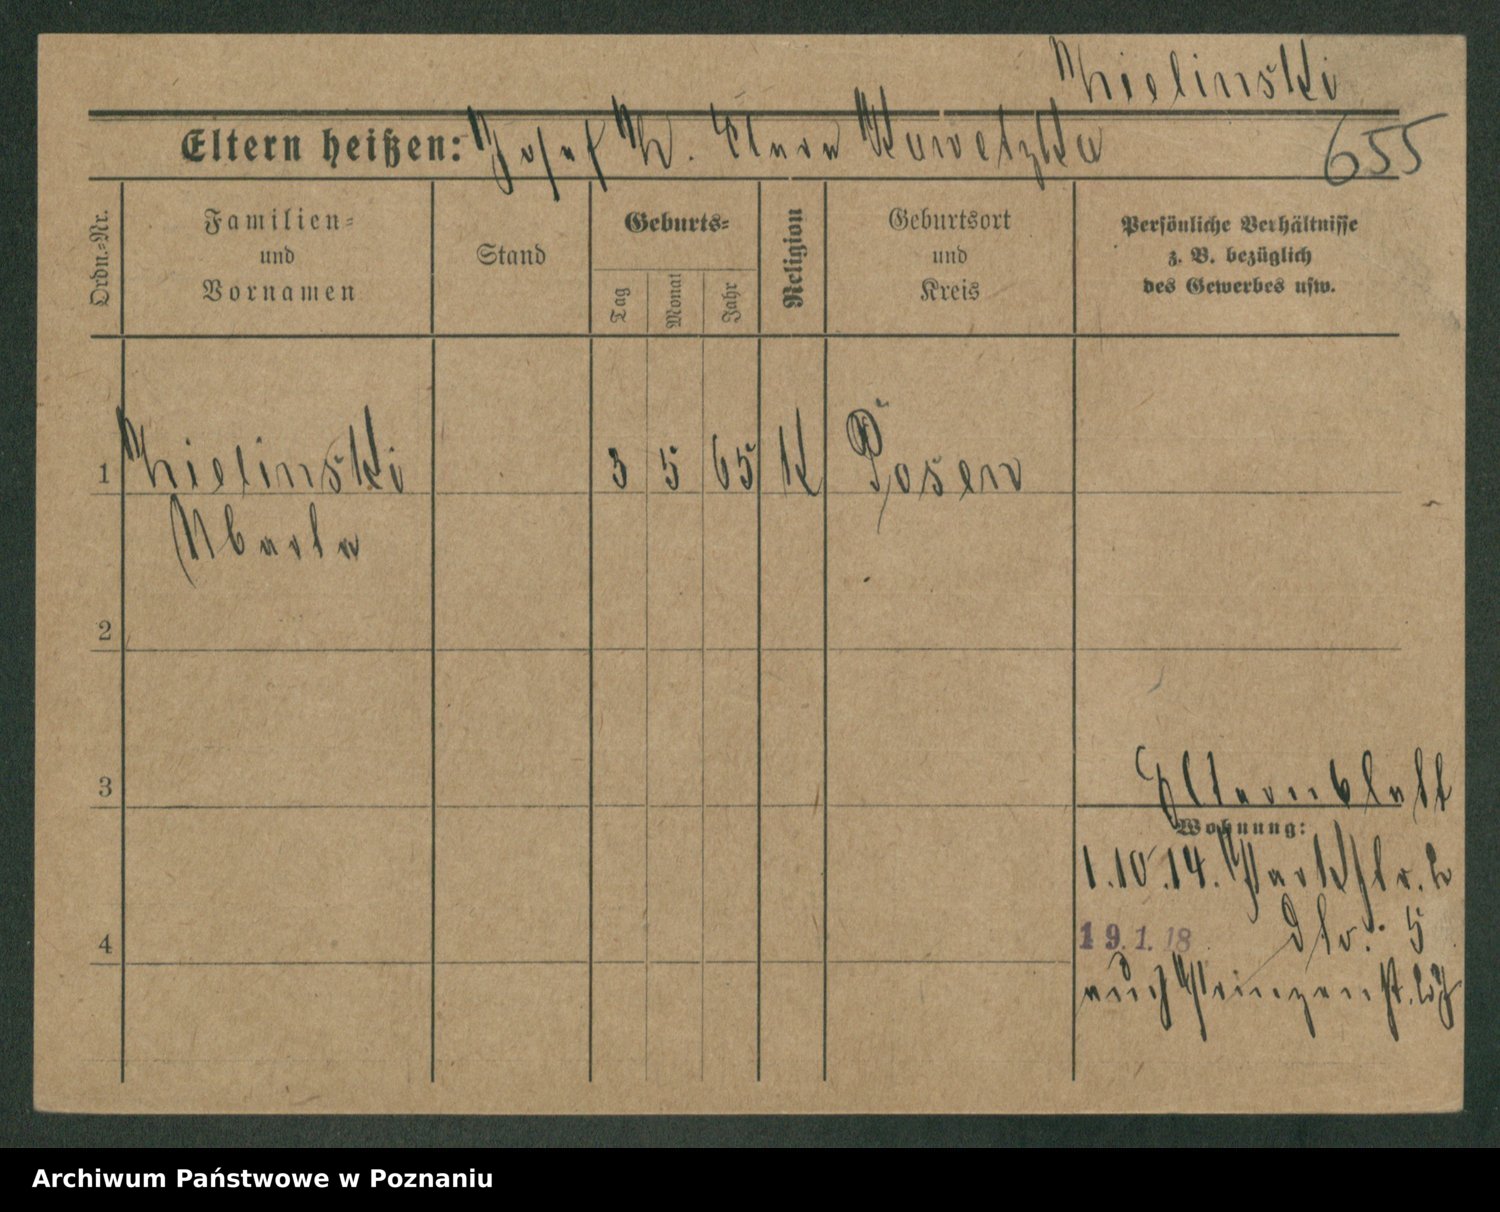 Zielinski
Eltern heißen: Josef Z. Clara Kawetzka
655
Ordn.=Nr.
Familien=
und
Vornamen
Stand
Geburts=
Tag
Monat
Jahr
Religion
Geburtsort
und
Kreis
Persönliche Verhältnisse
z. B. bezüglich
des Gewerbes usw.
1 Zielinski 3 5 65 K Posen
2
3
Elternblatt
Wohnung:
1.10.14. Parkstr. 2
4
19.1.18 dto. 5
nach Prinzenst.
Archiwum Państwowe w Poznaniu